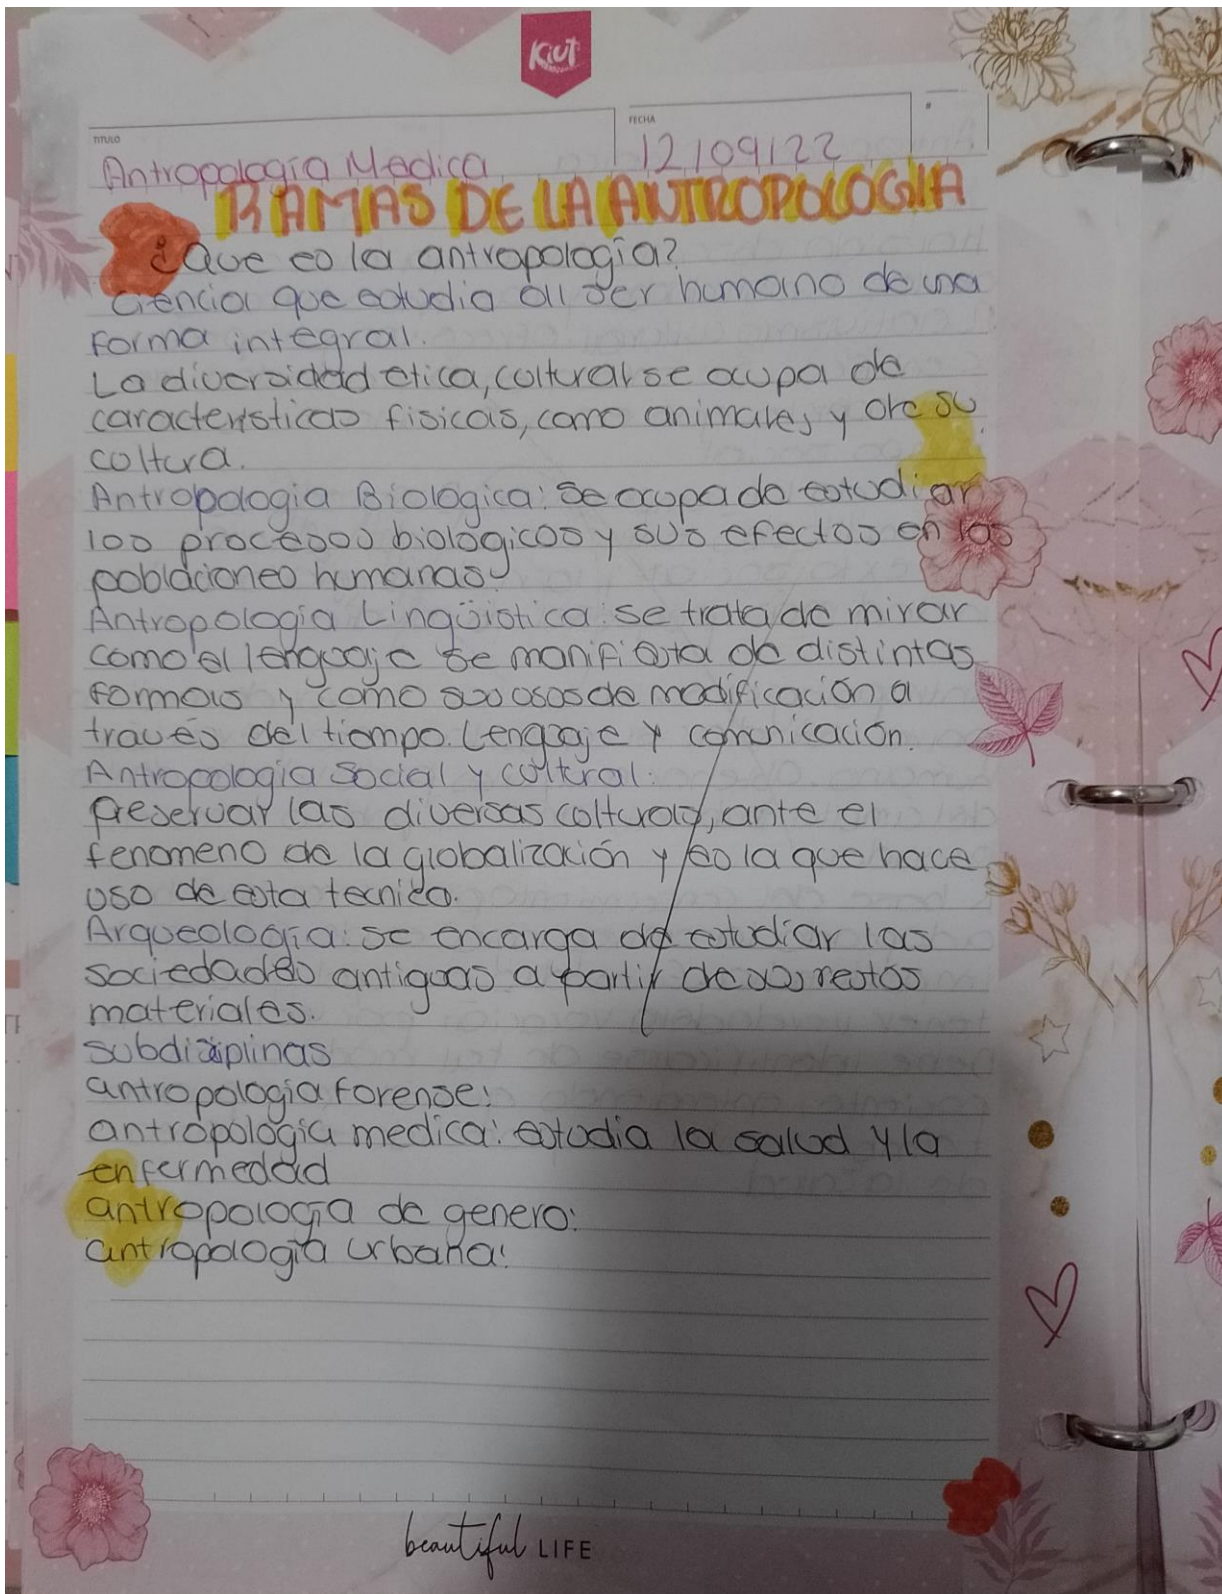 Kiut
TITULO
FECHA
#
Antropología Medica
12/09/22
RAMAS DE LA ANTROPOLOGIA
¿Que es la antropología?
Ciencia que estudia all ser humano de una
forma integral.
La diversidad etica, cultural se ocupa de
caracteristicas fisicas, como animales y de su
cultura.
Antropologia Biologica: Se ocupa de estudiar
los procesos biologicos y sus efectos en las
poblaciones humanas.
Antropología Lingüistica: se trata de mirar
como el lenguaje se manifiesta de distintas
formas y como sus usos de modificación a
través del tiempo. Lenguaje y comunicación.
Antropologia Social y cultural:
preservar las diversas culturas, ante el
fenomeno de la globalización y es la que hace
uso de esta tecnica.
Arqueología: se encarga de estudiar las
sociedades antiguas a partir de sus restos
materiales.
subdisiplinas
antropologia forense:
antropologia medica: estudia la salud y la
enfermedad
antropologia de genero:
antropologia urbana:
beautiful LIFE